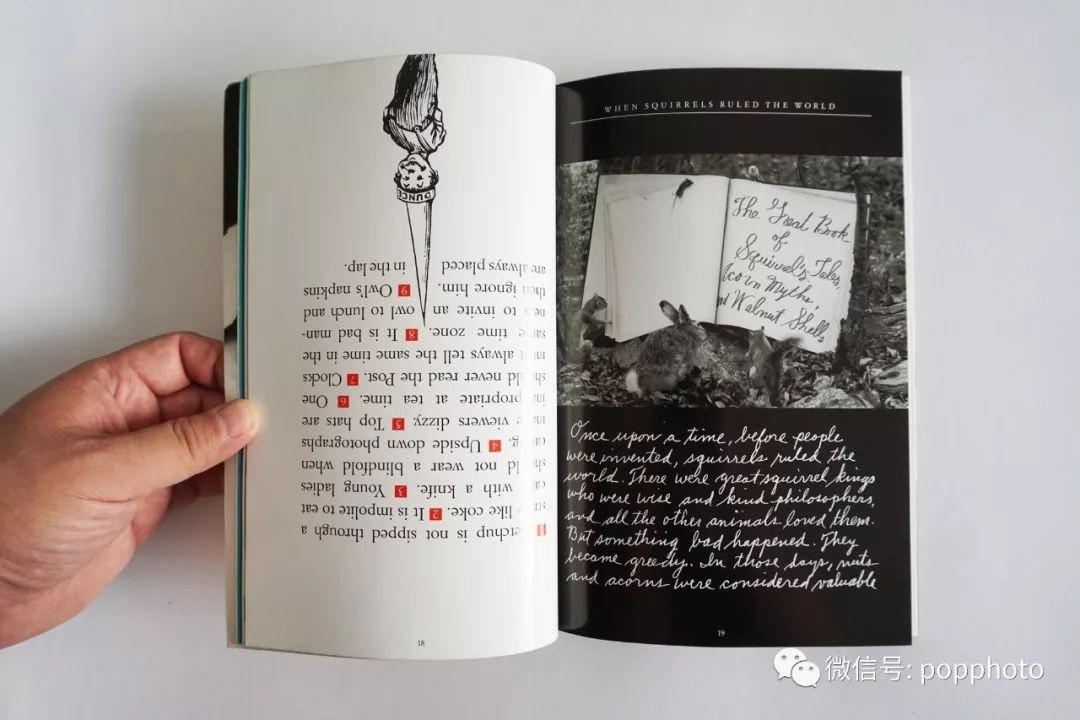 is not sipped through a
like coke. 2 It is impolite to eat
with a knife. 3 Young ladies
not wear a blindfold when
4 Upside down photographs
viewers dizzy. 5 Top hats are
at tea time. 6 One
never read the Post. 7 Clocks
always tell the same time in the
time zone. 8 It is bad man-
to invite an owl to lunch and
then ignore him. 9 Owl's napkins
are always placed in the lap.
DUNCE
18
WHEN SQUIRRELS RULED THE WORLD
The Great Book
of
Squirrel's Tales,
Acorn Myths,
Walnut Shells
Once upon a time, before people
were invented, squirrels ruled the
world. There were great squirrel kings
who were wise and kind philosophers,
and all the other animals loved them.
But something bad happened. They
became greedy. In those days, nuts
and acorns were considered valuable
19
微信号: popphoto